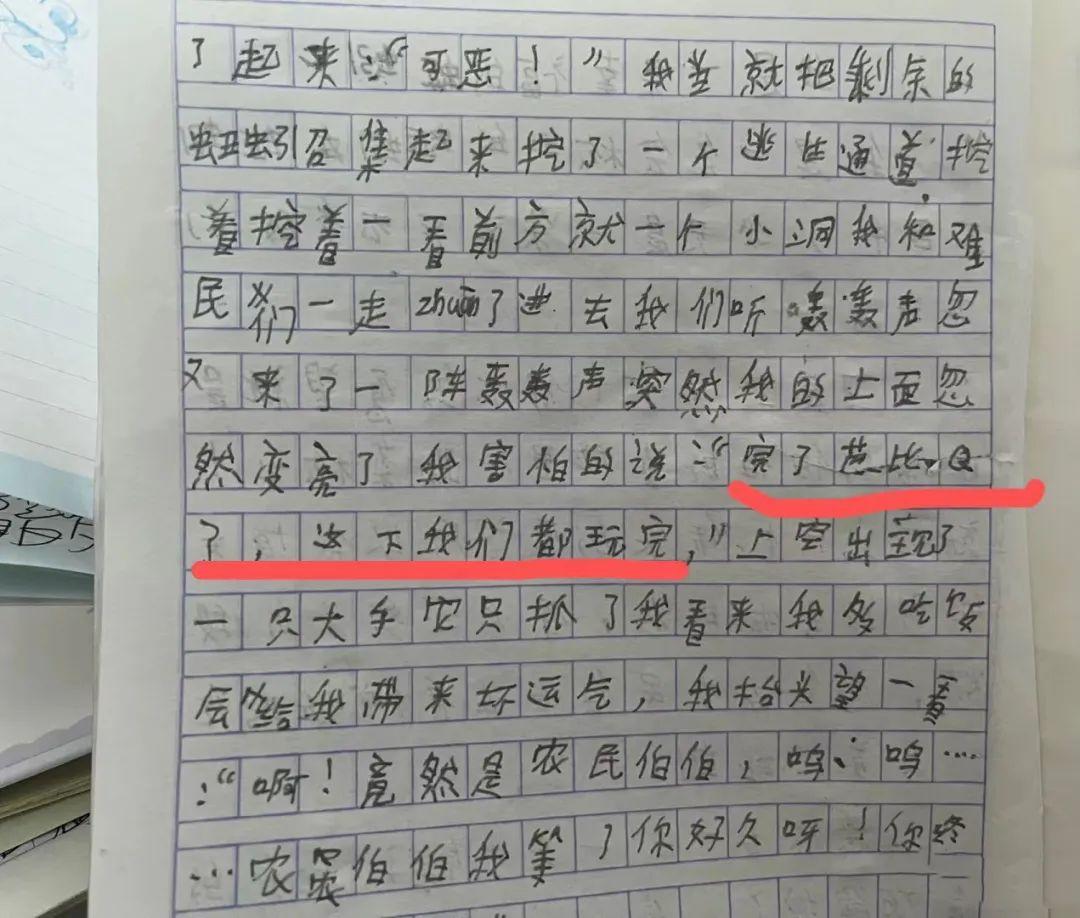 了起来:“可恶！”我差就把剩余的
蚯蚓召集起来挖了一个逃生通道.挖
着挖着一看前方就一个小洞我和难
民们一走zhuan了进去我们听轰轰声忽
又来了一阵轰轰声突然我的上面忽
然变亮了我害怕的说:“完了芭比Q
了，这下我们都玩完，”上空出现了
一只大手它只抓了我看来我多吃饭
会给我带来坏运气，我抬头望一看
:“啊！竟然是农民伯伯，呜、呜…
…农民伯伯我等了你好久呀！你终